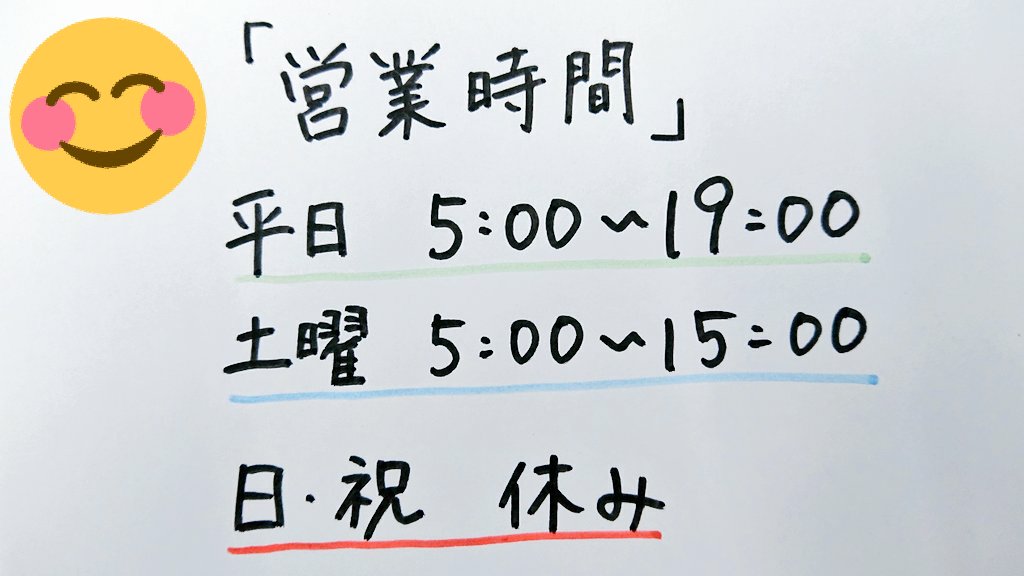 「営業時間」
平日 5:00~19:00
土曜 5:00~15:00
日・祝 休み